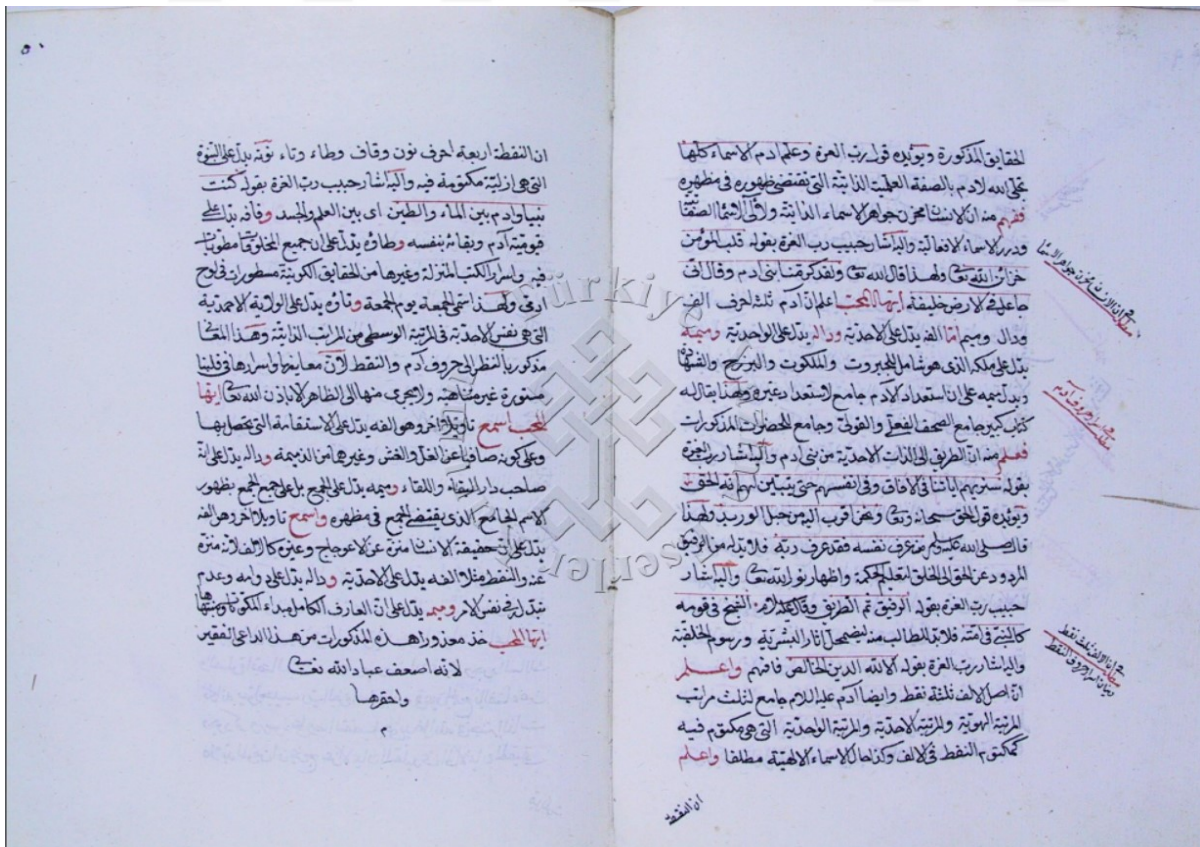 الحقايق المذكورة ويؤيده قول رب العزة وعلم ادم الاسماء كلها
تجلى الله لادم بالصفة العلمية الذاتية التى تقتضى ظهوره فى مظهره
ففهم منه ان الانسان مخزن جواهر الاسماء الذاتية ولآلى الاسماء الصفاتية
ودرر الاسماء الافعالية واليه اشار حبيب رب العزة بقوله قلب المؤمن
خزائن الله تعا ولهذا قال الله تعا ولقد كرمنا بنى ادم وقال انى
جاعل فى الارض خليفة ايها المحب اعلم ان ادم ثلث احرف الف
ودال وميم اما الفه يدل على الاحدية وداله يدل على الواحدية وميمه
يدل على ملكه الذى هو شامل للجبروت والملكوت والبرزخ والشهادة
ويدل ميمه على ان استعداد الادم جامع لاستعداد غيره ولهذا يقال له
كتاب كبير جامع الصحف الفعلى والقولى وجامع للحضرات المذكورات
فعلم منه ان الطريق الى الذات الاحدية من بنى ادم واليه اشار رب العزة
بقوله سنريهم اياتنا فى الافاق وفى انفسهم حتى يتبين لهم انه الحق
ويؤيده قول الحق سبحانه وتعا ونحن اقرب اليه من حبل الوريد ولهذا
قال صلى الله عليه وسلم من عرف نفسه فقد عرف ربه فلا بد له من الرفيق
المردود عن الحق الى الخلق لتعليم الحكمة واظهار نور الله تعا واليه اشار
حبيب رب العزة بقوله الرفيق ثم الطريق وقال عليه السلام الشيخ فى قومه
كالنبى فى امته فلا بد للطالب منه ليضمحل اثار البشرية ورسوم الخلقية
واليه اشار رب العزة بقوله الا لله الدين الخالص فافهم واعلم
ان اصل الالف ثلثة نقط وايضا آدم عليه السلام جامع لثلث مراتب
المرتبة الهوية والمرتبة الاحدية والمرتبة الواحدية التى هى مكتوم فيه
كمكتوم النقط فى الالف وكذا حال الاسماء الالهية مطلقا واعلم
ان النقطة
مطلب فى ان الانسان مخزن جواهر الاسما
مطلب اسرار حروف آدم
مطلب فى ان الالف ثلث نقط
وبيان اسرار حروف النقط
٥٠
ان النقطة اربعة احرف نون وقاف وطاء وتاء نونه يدل على النبوة
التى هى ازلية مكتومة فيه واليه اشار حبيب رب العزة بقوله كنت
نبيا وادم بين الماء والطين اى بين العلم والجسد وقافه يدل على
قيومية آدم وبقائه بنفسه وطاؤه يدل على ان جميع المخلوقات مطويات
فيه واسرار الكتب المنزلة وغيرها من الحقايق الكونية مسطورات فى لوح
ادم ولهذا سمى الجمعة يوم الجمعة وتاؤه يدل على الولاية الاحمدية
التى هى نفس الاحدية فى المرتبة الوسطى من المراتب الذاتية وهذا المعا
مذكور بالنظر الى حروف آدم والنقط لان معانيها واسرارها فى قلبنا
مستورة غير متناهية ولا يجرى منها الى الظاهر الا باذن الله تعا ايها
المحب اسمع تاويلا آخر وهو الفه يدل على الاستقامة التى يحصل بها
وعلى كونه صافيا عن الغل والغش وغيرها من الذميمة وداله يدل على انه
صاحب دار البقاء واللقاء وميمه يدل على الجمع بل على جمع الجمع بظهور
الاسم الجامع الذى يقتضى الجمع فى مظهره واسمع تاويلا آخر وهو الفه
يدل على ان حقيقة الانسان منزه عن الاعوجاج وغيره كالالف لانه منزه
عنه والنقط مثلا الفه يدل على الاحدية وداله يدل على دوامه وعدم
تبدله فى نفس الامر وميمه يدل على ان العارف الكامل مبداء المكونات ومنتهاها
ايها المحب خذ معذورا هذه المذكورات من هذا الداعى الفقير
لانه اضعف عباد الله تعا
واحقرها
م